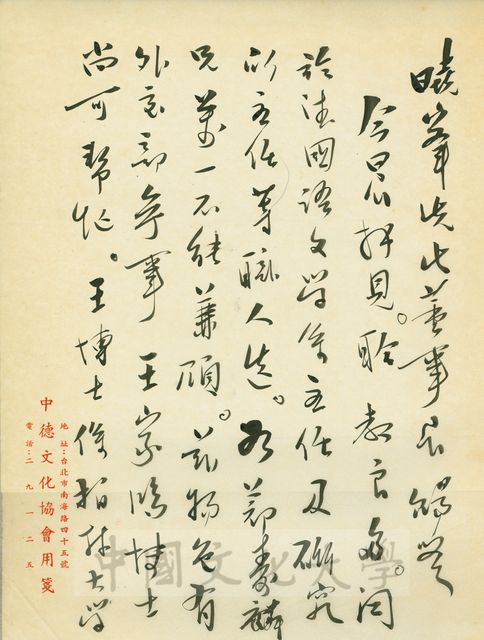 曉峯先生董事長賜鑒
今晨拜見。聆教良多。關
於德國語文學系主任及研究
所主任等職人選。如蔣壽麟
兄萬一不能兼顧。茲物色有
外交部參事王家鴻博士
尚可幫忙。王博士係柏林大學
中德文化協會用箋
地址：台北市南海路四十五號
電話：二九一二五
中國文化大學